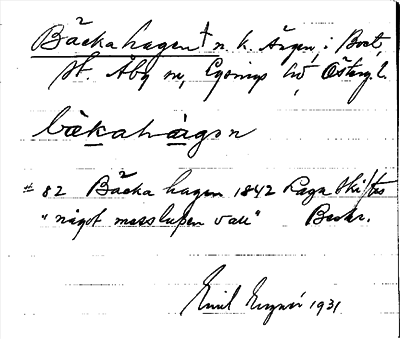 Bäckahagen † n. k. Ängen, i Boet,
St. Åby sn, Lysings hd Österg. l.
bäkahàgen
± 82 Bäcka hagen 1842 Laga Skiftes
"något mosslupen vall" Beskr.
Emil 1931